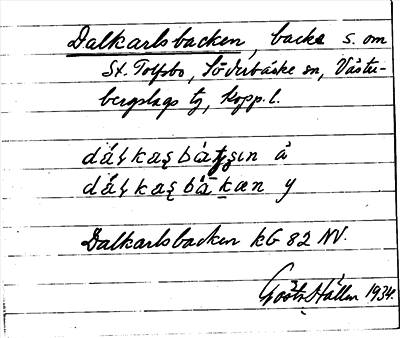 Dalkarlsbacken, backe s. om
St. Tolfsbo, Söderbärke sn, Väster-
bergslags tg, Kopp. l.
dáɬkaʂbàtʂın å
dáɬkaʂbàkæn y
Dalkarlsbacken kG 82 NV.
Gösta Hållen 1934.